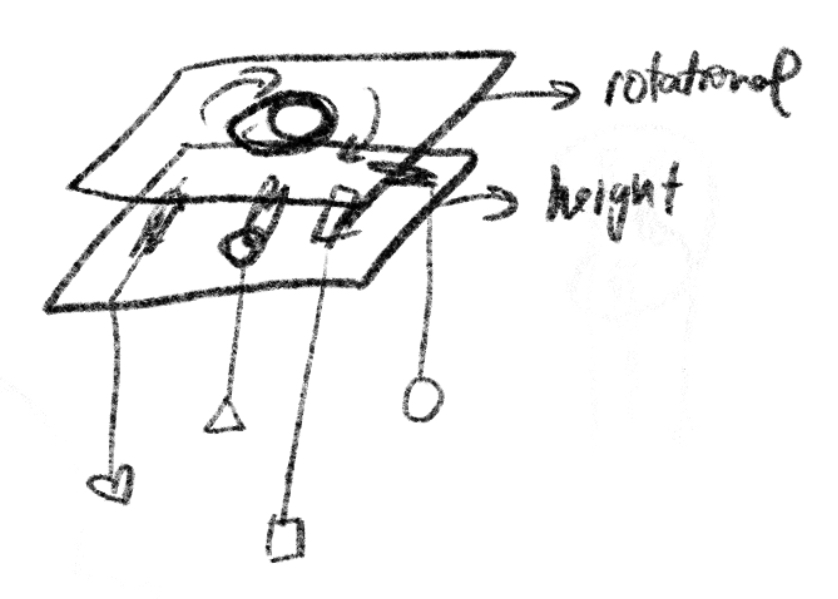 rotational
height